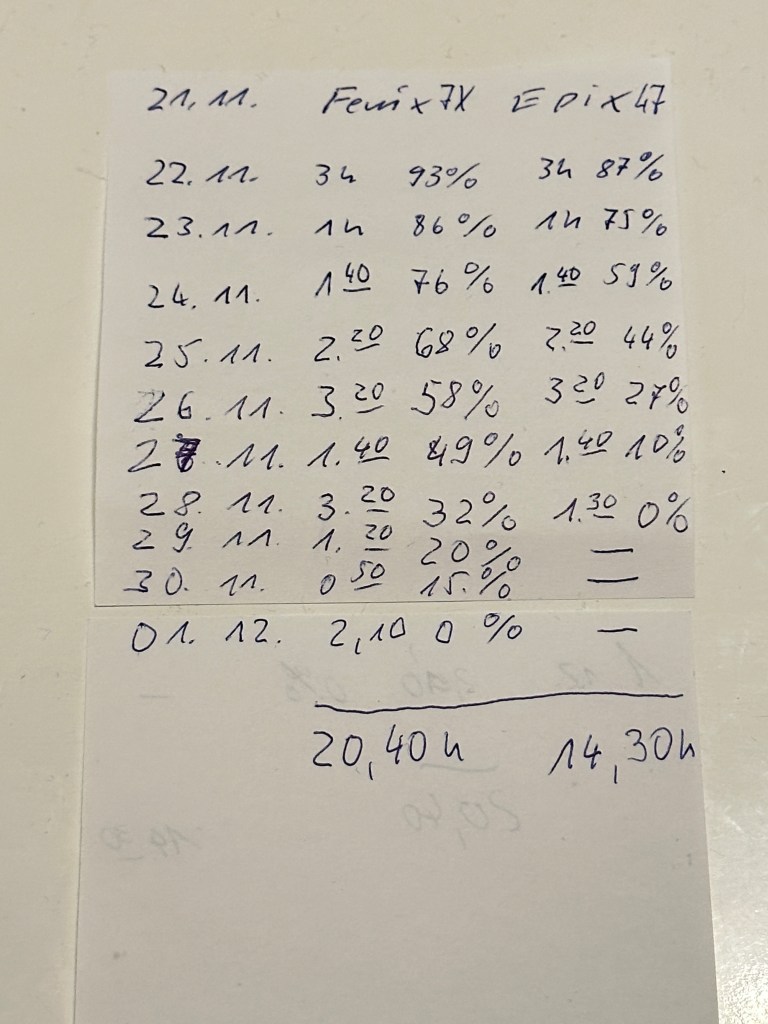 21.11. Fenix 7X Epix 47
22.11. 3h 93% 3h 87%
23.11. 1h 86% 1h 75%
24.11. 1 40 76% 1.40 59%
25.11. 2.20 68% 2.20 44%
26.11. 3.20 58% 3 20 27%
27.11. 1.40 49% 1.40 10%
28.11. 3.20 32% 1.30 0%
29.11. 1.20 20% —
30.11. 0 50 15.% —
01.12. 2,10 0% —
20,40h 14,30h